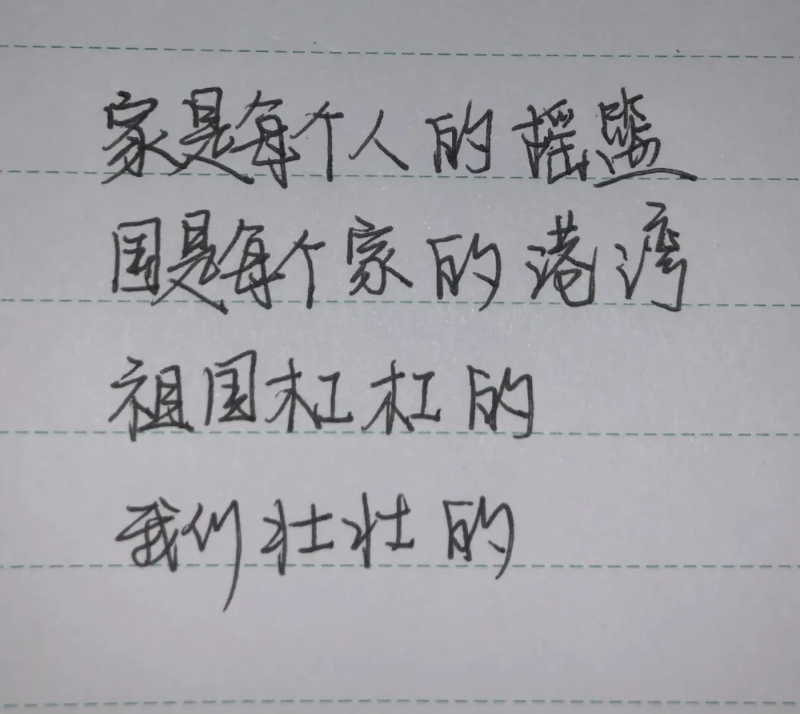 家是每个人的摇篮
国是每个家的港湾
祖国杠杠的
我们壮壮的